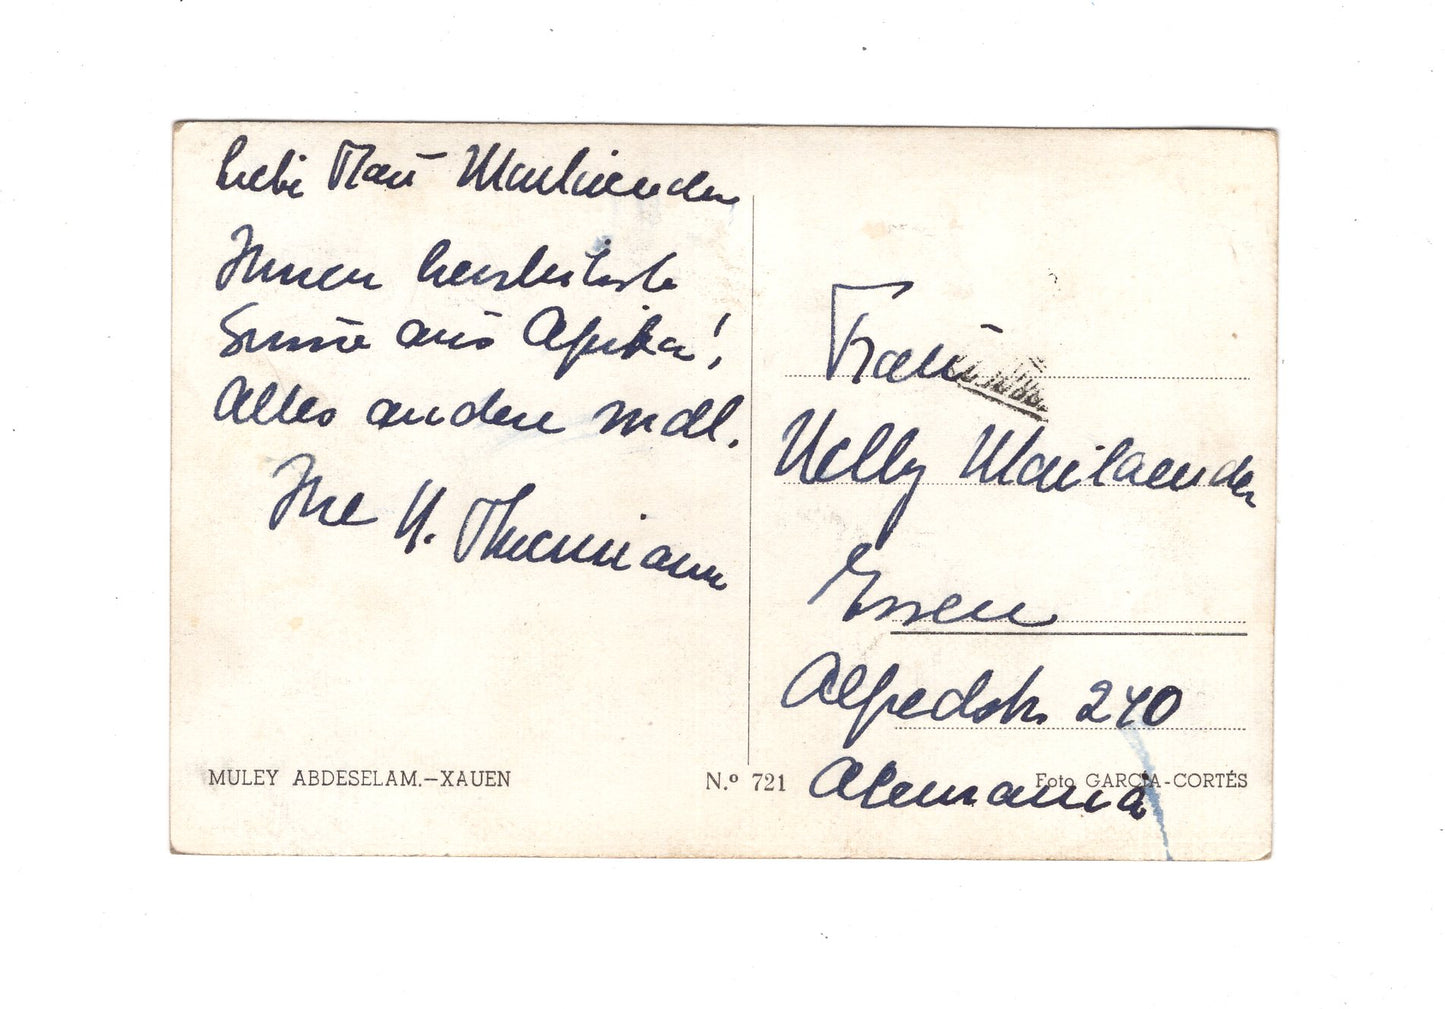 Liebe Frau Mailaender
Ihnen herzlichste
Grüsse aus Afrika!
Alles andere mdl.
Ihre H.
Frau
Nelly Mailaender
Essen
Alfredstr. 240
Alemania
MULEY ABDESELAM.—XAUEN
N.º 721
Foto GARCÍA-CORTÉS